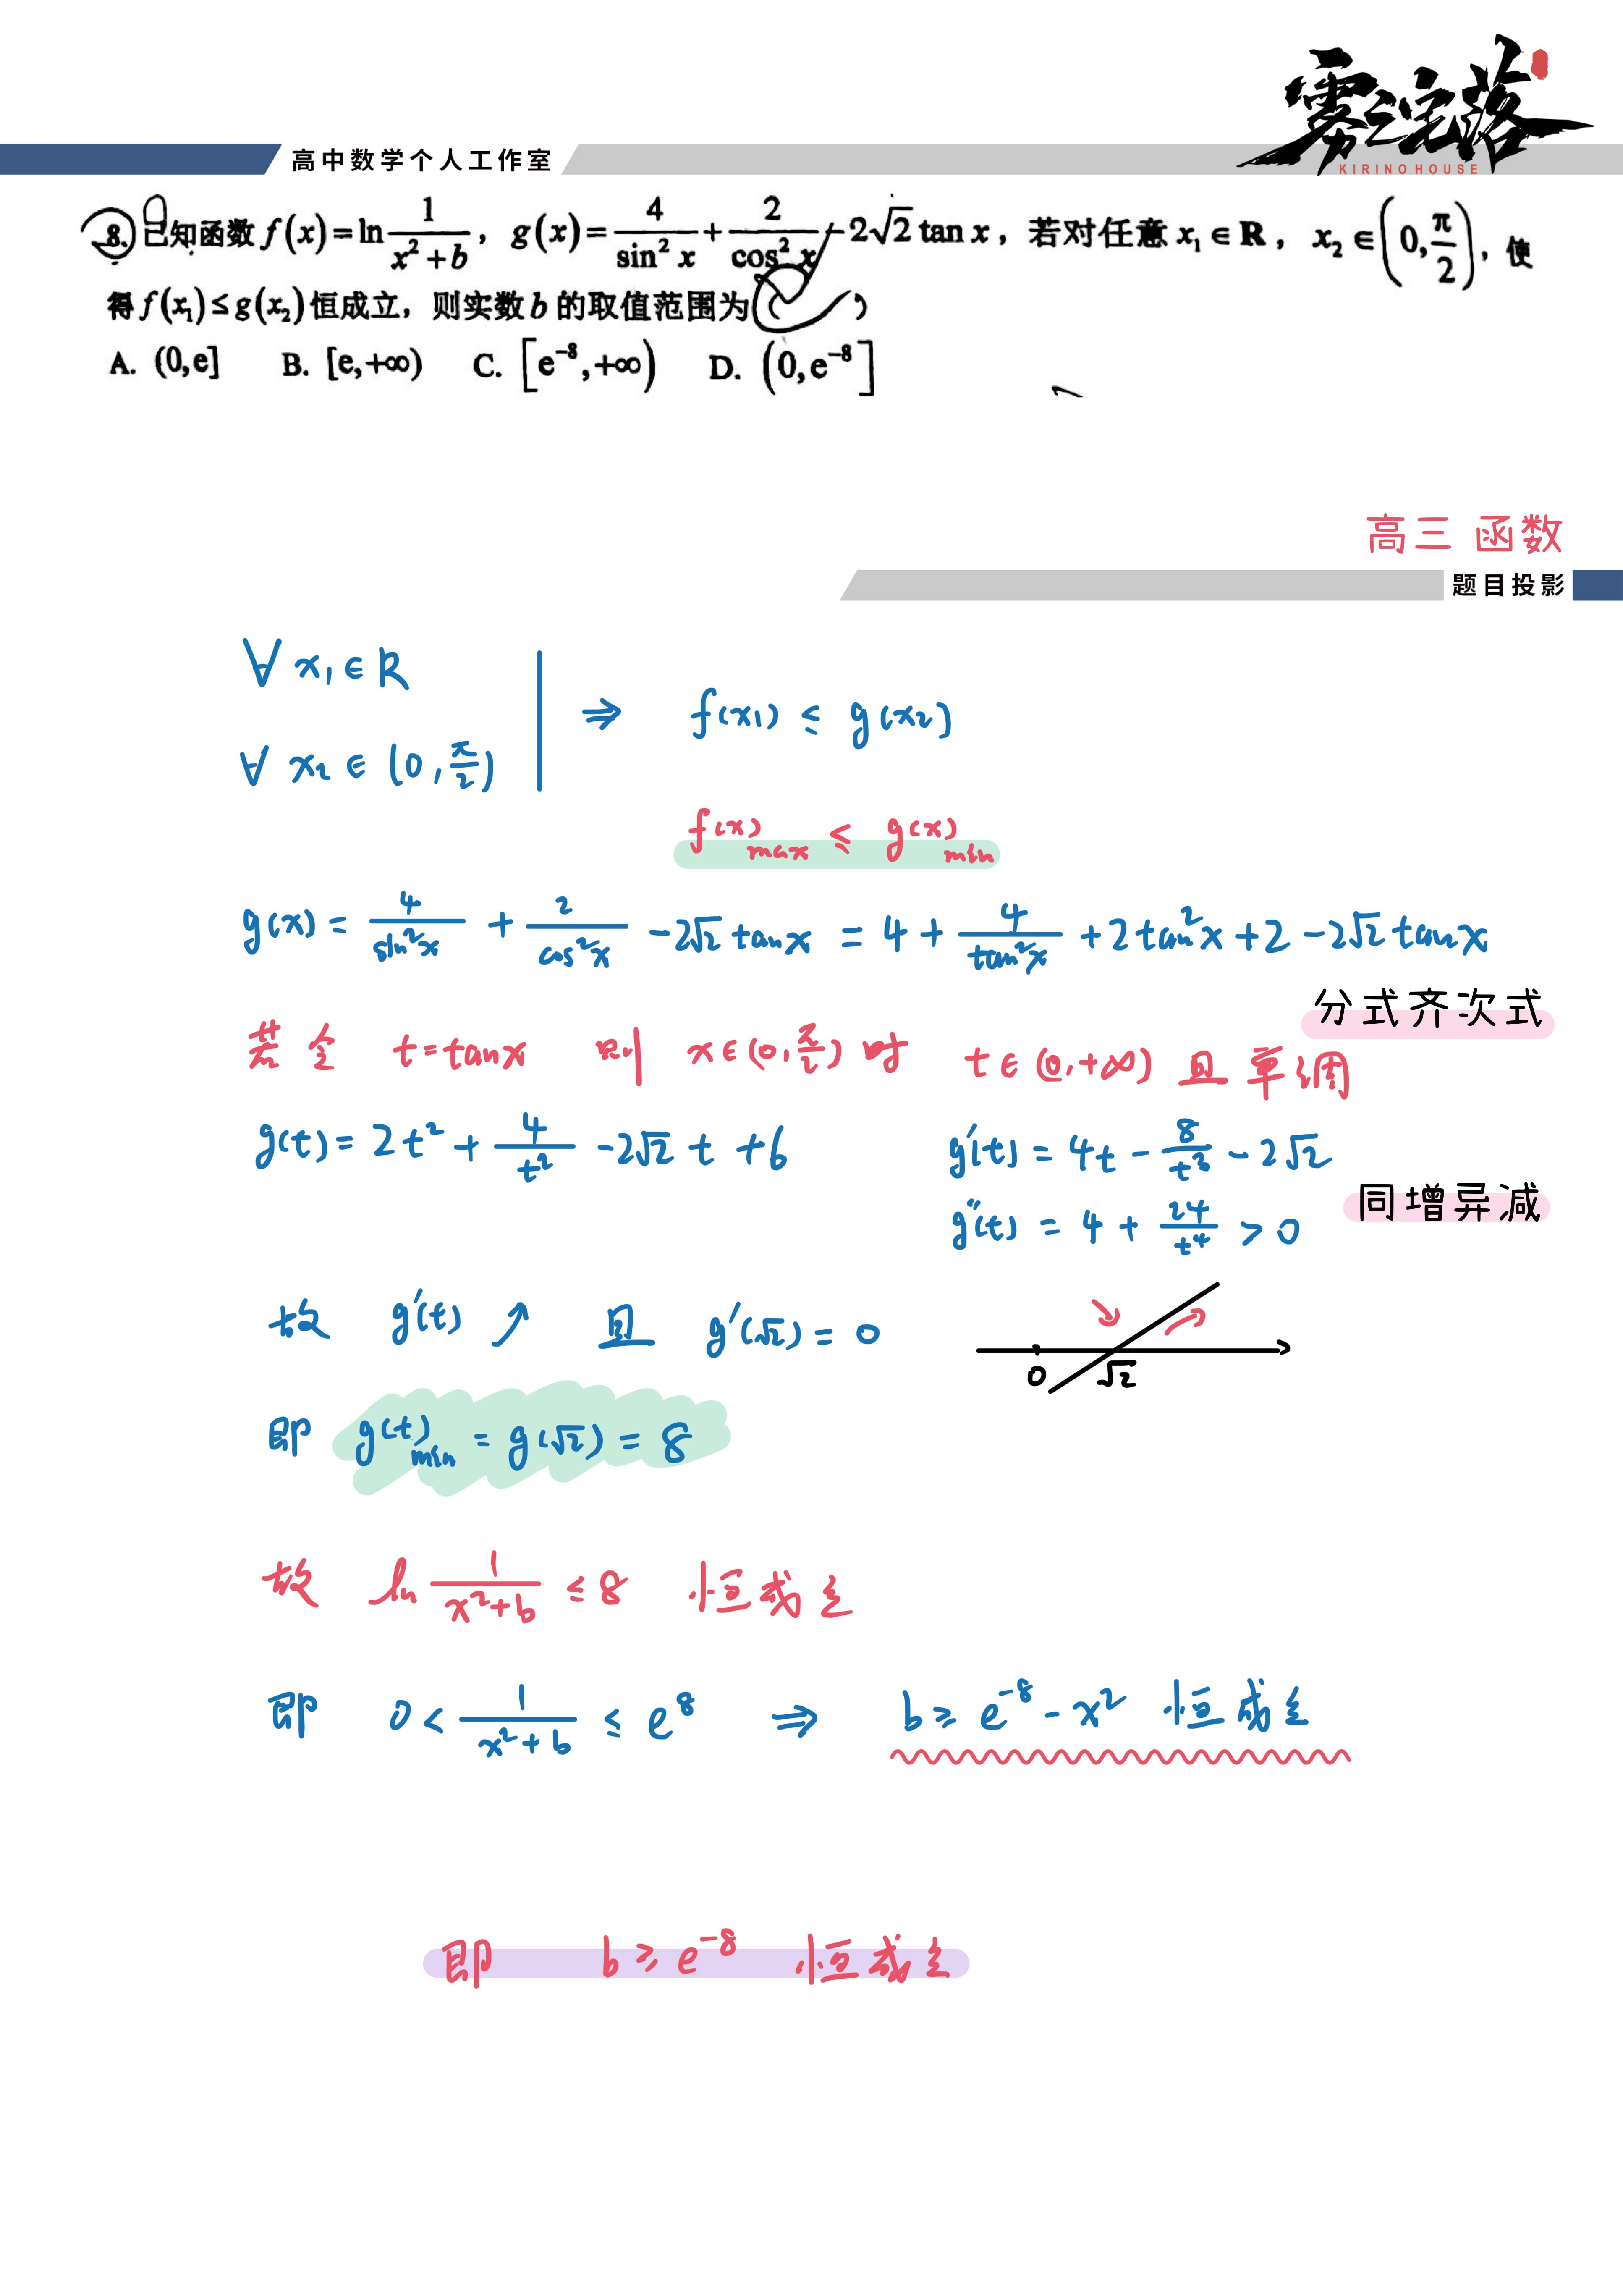 雾之宅落
KIRINO HOUSE
高中数学个人工作室
8. 已知函数 f(x)=ln 1/(x²+b), g(x)=4/sin²x + 2/cos²x - 2√2 tan x, 若对任意 x₁∈R, x₂∈(0, π/2), 使
得 f(x₁)≤g(x₂) 恒成立, 则实数 b 的取值范围为( )
A. (0,e] B. [e,+∞) C. [e⁻⁸,+∞) D. (0,e⁻⁸]
高三 函数
题目投影
∀ x₁∈R
∀ x₂∈(0, π/2)
⇒ f(x₁) ≤ g(x₂)
f(x)max ≤ g(x)min
g(x) = 4/sin²x + 2/cos²x - 2√2 tanx = 4 + 4/tan²x + 2tan²x + 2 - 2√2 tanx
分式齐次式
若令 t=tanx 则 x∈(0, π/2) 时 t∈(0,+∞) 且单调
g(t) = 2t² + 4/t² - 2√2 t + 6
g'(t) = 4t - 8/t³ - 2√2
g''(t) = 4 + 24/t⁴ > 0
同增异减
故 g'(t) ↗ 且 g'(√2) = 0
0 √2
即 g(t)min = g(√2) = 8
故 ln 1/(x²+b) ≤ 8 恒成立
即 0 < 1/(x²+b) ≤ e⁸ ⇒ b ≥ e⁻⁸ - x² 恒成立
即 b ≥ e⁻⁸ 恒成立